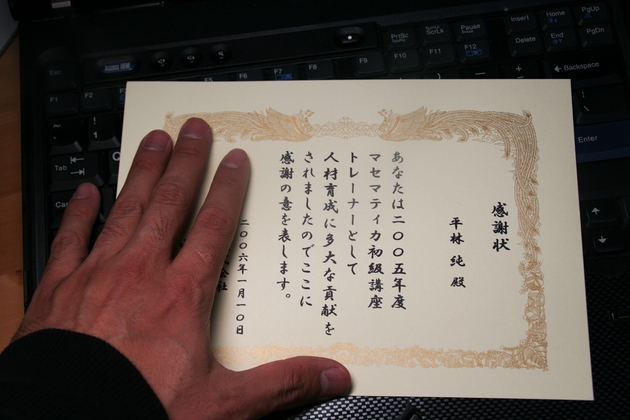 感謝状
平林 純 殿
あなたは二〇〇五年度
マセマティカ初級講座
トレーナーとして
人材育成に多大な貢献を
されましたのでここに
感謝の意を表します。
二〇〇六年一月一〇日
会社
Esc
F1
F2
F5
F6
F7
F8
F9
F10
F11
F12
PrtSc
ScrLk
Pause
Insert
Home
PgUp
Delete
End
PgDn
Backspace
Enter
Tab
Q
! 1